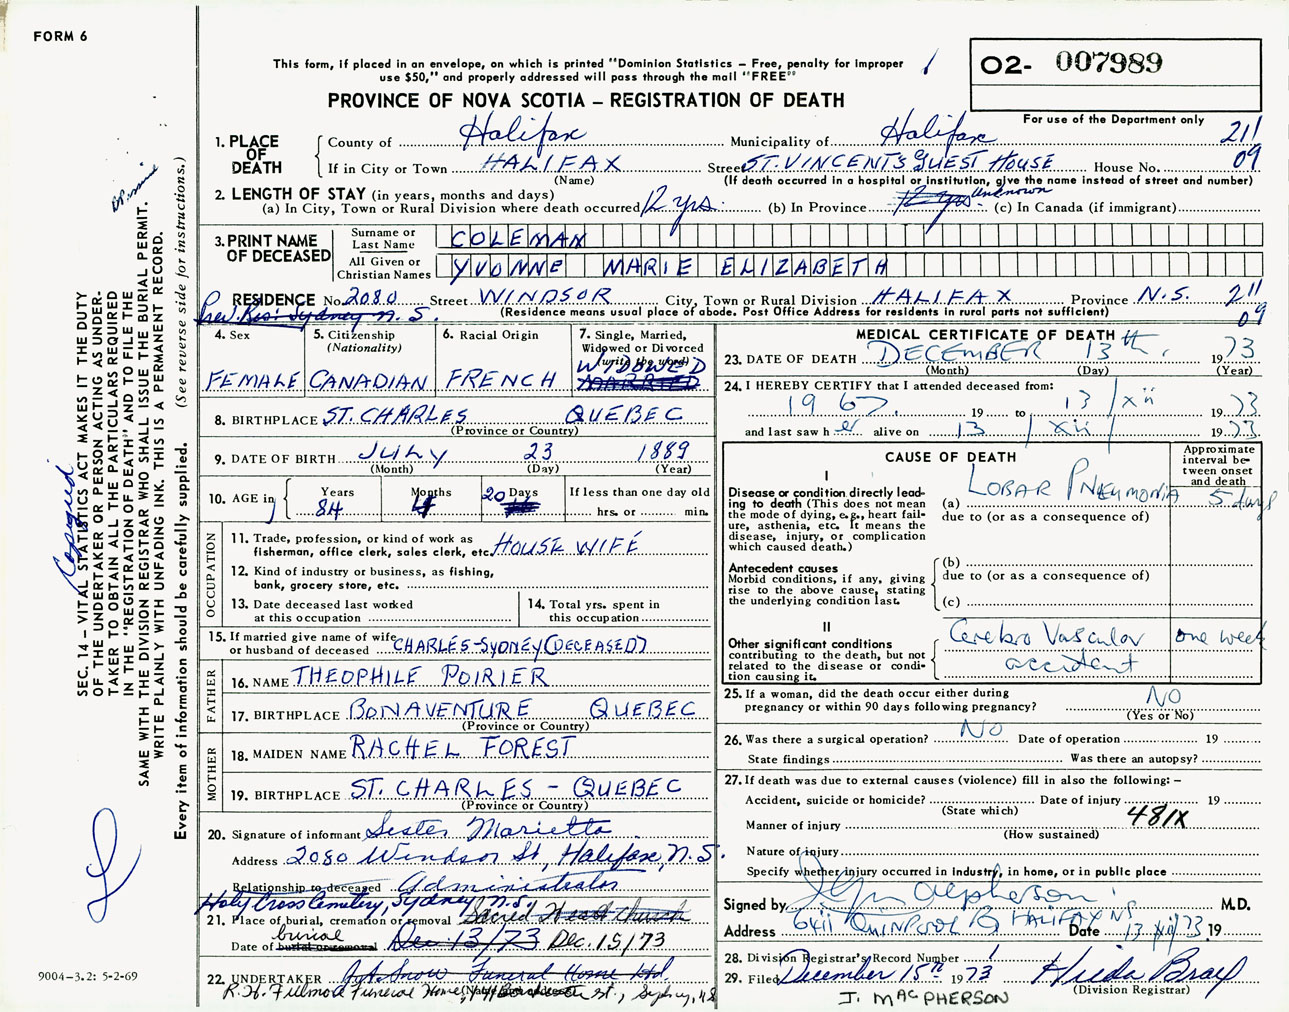 FORM 6
This form, if placed in an envelope, on which is printed "Dominion Statistics – Free, penalty for improper
use $50," and properly addressed will pass through the mail "FREE"
O2- 007989
For use of the Department only
PROVINCE OF NOVA SCOTIA – REGISTRATION OF DEATH
211
09
1. PLACE OF DEATH
County of Halifax Municipality of Halifax
If in City or Town HALIFAX Street ST. VINCENT'S GUEST HOUSE House No.
(Name) (If death occurred in a hospital or institution, give the name instead of street and number)
2. LENGTH OF STAY (in years, months and days)
(a) In City, Town or Rural Division where death occurred 12 yrs. (b) In Province 12 yrs unknown (c) In Canada (if immigrant)
3. PRINT NAME OF DECEASED
Surname or Last Name COLEMAN
All Given or Christian Names YVONNE MARIE ELIZABETH
RESIDENCE No. 2080 Street WINDSOR City, Town or Rural Division HALIFAX Province N.S. 211
09
Prev. Res: Sydney N.S. (Residence means usual place of abode. Post Office Address for residents in rural parts not sufficient)
4. Sex FEMALE
5. Citizenship (Nationality) CANADIAN
6. Racial Origin FRENCH
7. Single, Married, Widowed or Divorced (write the word) WIDOWED MARRIED
8. BIRTHPLACE ST. CHARLES QUEBEC
(Province or Country)
9. DATE OF BIRTH JULY 23 1889
(Month) (Day) (Year)
10. AGE in Years 84 Months 4 Days 20 If less than one day old hrs. or min.
OCCUPATION
11. Trade, profession, or kind of work as fisherman, office clerk, sales clerk, etc. HOUSE WIFE
12. Kind of industry or business, as fishing, bank, grocery store, etc.
13. Date deceased last worked at this occupation
14. Total yrs. spent in this occupation
15. If married give name of wife or husband of deceased CHARLES-SYDNEY (DECEASED)
FATHER
16. NAME THEOPHILE POIRIER
17. BIRTHPLACE BONAVENTURE QUEBEC
(Province or Country)
MOTHER
18. MAIDEN NAME RACHEL FOREST
19. BIRTHPLACE ST. CHARLES – QUEBEC
(Province or Country)
20. Signature of informant Sister Marietta
Address 2080 Windsor St, Halifax, N.S.
Relationship to deceased Administrator
Holy Cross Cemetery, Sydney N.S.
21. Place of burial, cremation or removal Sacred Heart Church
burial
Date of burial or removal Dec 13/73 Dec. 15/73
22. UNDERTAKER Snow Funeral Home Ltd
R.H. Fillmore Funeral Home, St., Sydney, NS
MEDICAL CERTIFICATE OF DEATH
23. DATE OF DEATH DECEMBER 13th, 1973
(Month) (Day) (Year)
24. I HEREBY CERTIFY that I attended deceased from:
1967. 19 to 13/xii 1973
and last saw her alive on 13/xii 1973
CAUSE OF DEATH
Approximate interval between onset and death
I
Disease or condition directly leading to death (This does not mean the mode of dying, e.g., heart failure, asthenia, etc. It means the disease, injury, or complication which caused death.)
(a) LOBAR PNEUMONIA 5 days
due to (or as a consequence of)
Antecedent causes
Morbid conditions, if any, giving rise to the above cause, stating the underlying condition last.
(b)
due to (or as a consequence of)
(c)
II
Other significant conditions contributing to the death, but not related to the disease or condition causing it.
Cerebro Vascular accident one week
25. If a woman, did the death occur either during pregnancy or within 90 days following pregnancy? NO
(Yes or No)
26. Was there a surgical operation? NO Date of operation 19
State findings Was there an autopsy?
27. If death was due to external causes (violence) fill in also the following: –
Accident, suicide or homicide? Date of injury 19
(State which)
481X
Manner of injury
(How sustained)
Nature of injury
Specify whether injury occurred in Industry, in home, or in public place
Signed by M.D.
Address 6411 QUINPOOL RD HALIFAX NS Date 13/xii/73 19
28. Division Registrar's Record Number
29. Filed December 15th 1973 Hilda Bray
(Division Registrar)
J. MACPHERSON
SEC. 14 – VITAL STATISTICS ACT MAKES IT THE DUTY
OF THE UNDERTAKER OR PERSON ACTING AS UNDER-
TAKER TO OBTAIN ALL THE PARTICULARS REQUIRED
IN THE "REGISTRATION OF DEATH" AND TO FILE THE
SAME WITH THE DIVISION REGISTRAR WHO SHALL ISSUE THE BURIAL PERMIT.
WRITE PLAINLY WITH UNFADING INK. THIS IS A PERMANENT RECORD.
Every item of information should be carefully supplied. (See reverse side for instructions.)
Copied
9004-3.2: 5-2-69